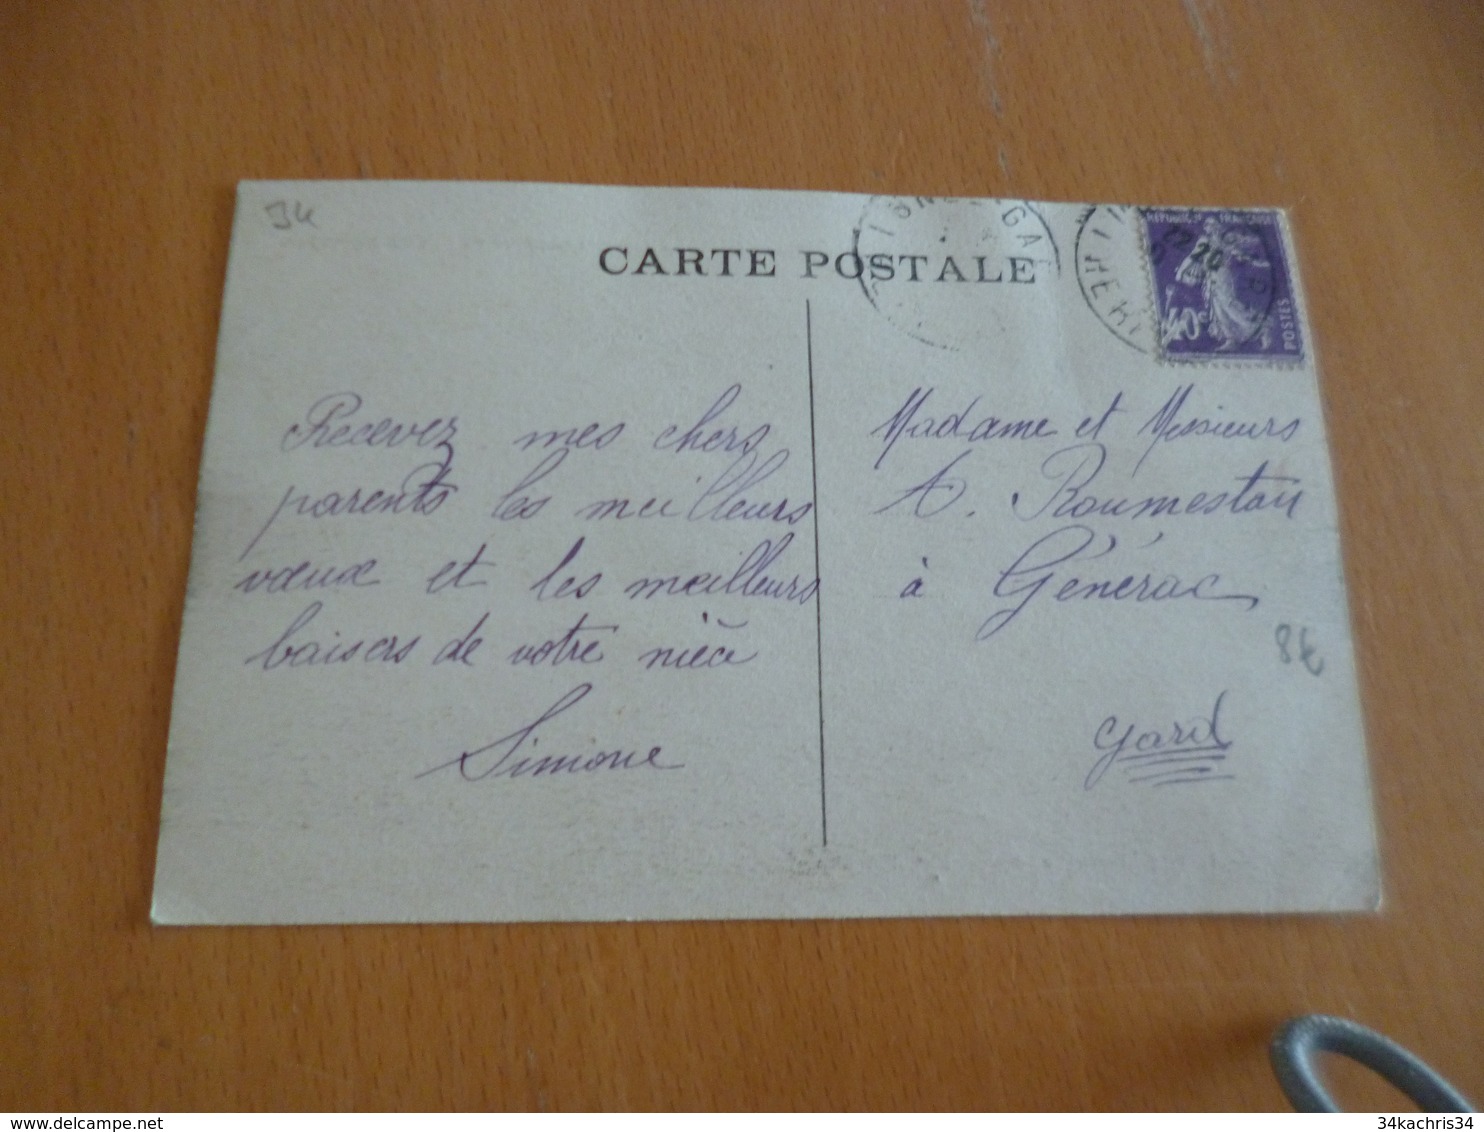 34
CARTE POSTALE
REPUBLIQUE FRANÇAISE
22 20
40c
POSTES
Recevez mes chers
parents les meilleurs
vœux et les meilleurs
baisers de votre nièce
Simone
Madame et Messieurs
A. Roumestan
à Générac
8€
Gard
34kachris34